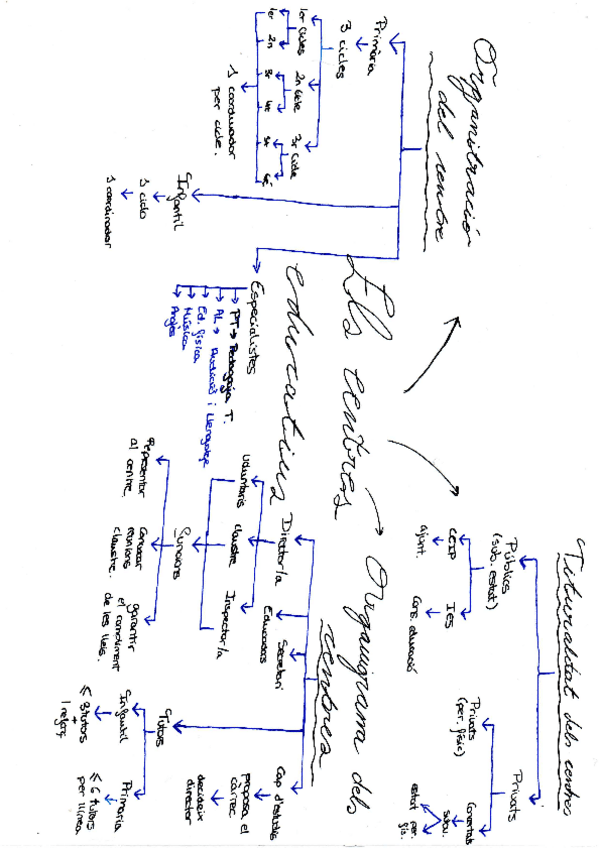 Els centres
educatius
Organització
del centre
Primària
3 cicles
1er cicle
2n cicle
3r cicle
1er
2n
3r
4t
5è
6è
1 coordinador
per cicle.
Infantil
1 coordinador
Especialistes
PT → Pedagogia T.
AL → Audició i Llenguatge
Ed. física
Música
Anglès
Titularitat dels centres
Públics
(sub. estat)
CEIP
ajunt.
IES
Cons. educació
Privats
Privats
(per. físic)
Concertats
Subv.
estat per.
Organigrama dels
centres
Director/a
Voluntaris
claustre
Inspector/a
Funcions
Representar
al centre.
Convocar
reunions
claustre.
garantir
el compliment
de les lleis.
Educadors
Secretari
Cap d'estudis
proposa el
càrrec.
decideix
director
Tutors
Infantil
≤ 3 tutors
+
1 reforç
Primària
≤ 6 tutors
per línea.